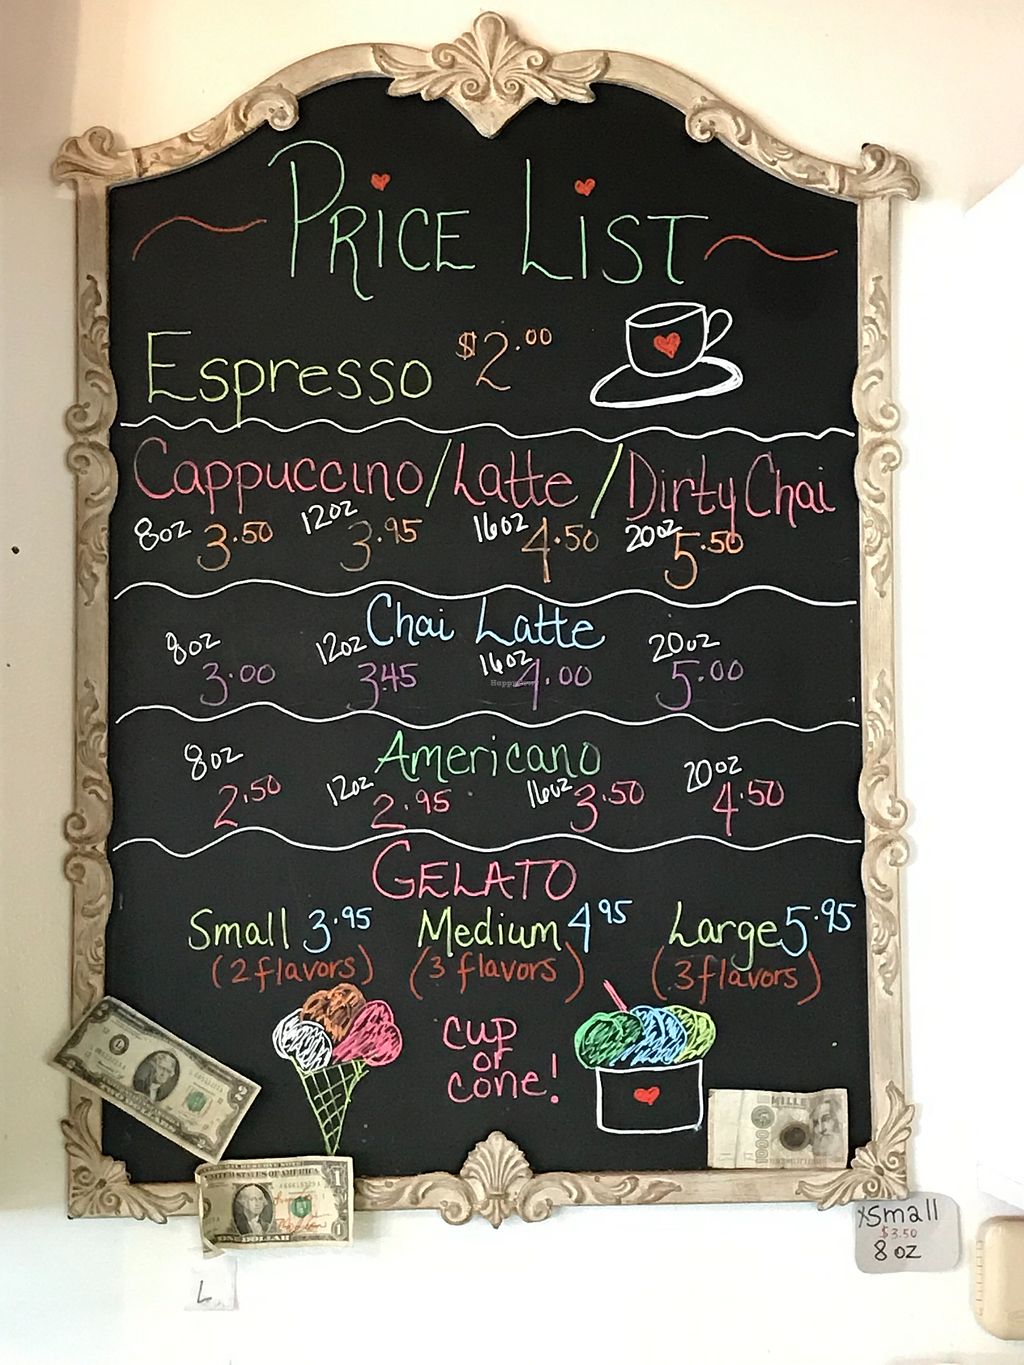 PRICE LIST
Espresso $2.00
Cappuccino/Latte/Dirty Chai
8oz 3.50 12oz 3.95 16oz 4.50 20oz 5.50
Chai Latte
8oz 3.00 12oz 3.45 16oz 4.00 20oz 5.00
Americano
8oz 2.50 12oz 2.95 16oz 3.50 20oz 4.50
GELATO
Small 3.95 Medium 4.95 Large 5.95
(2 flavors) (3 flavors) (3 flavors)
cup
or
cone!
MILLE
THE UNITED STATES OF AMERICA
ONE DOLLAR
xSmall
$3.50
8 oz
L